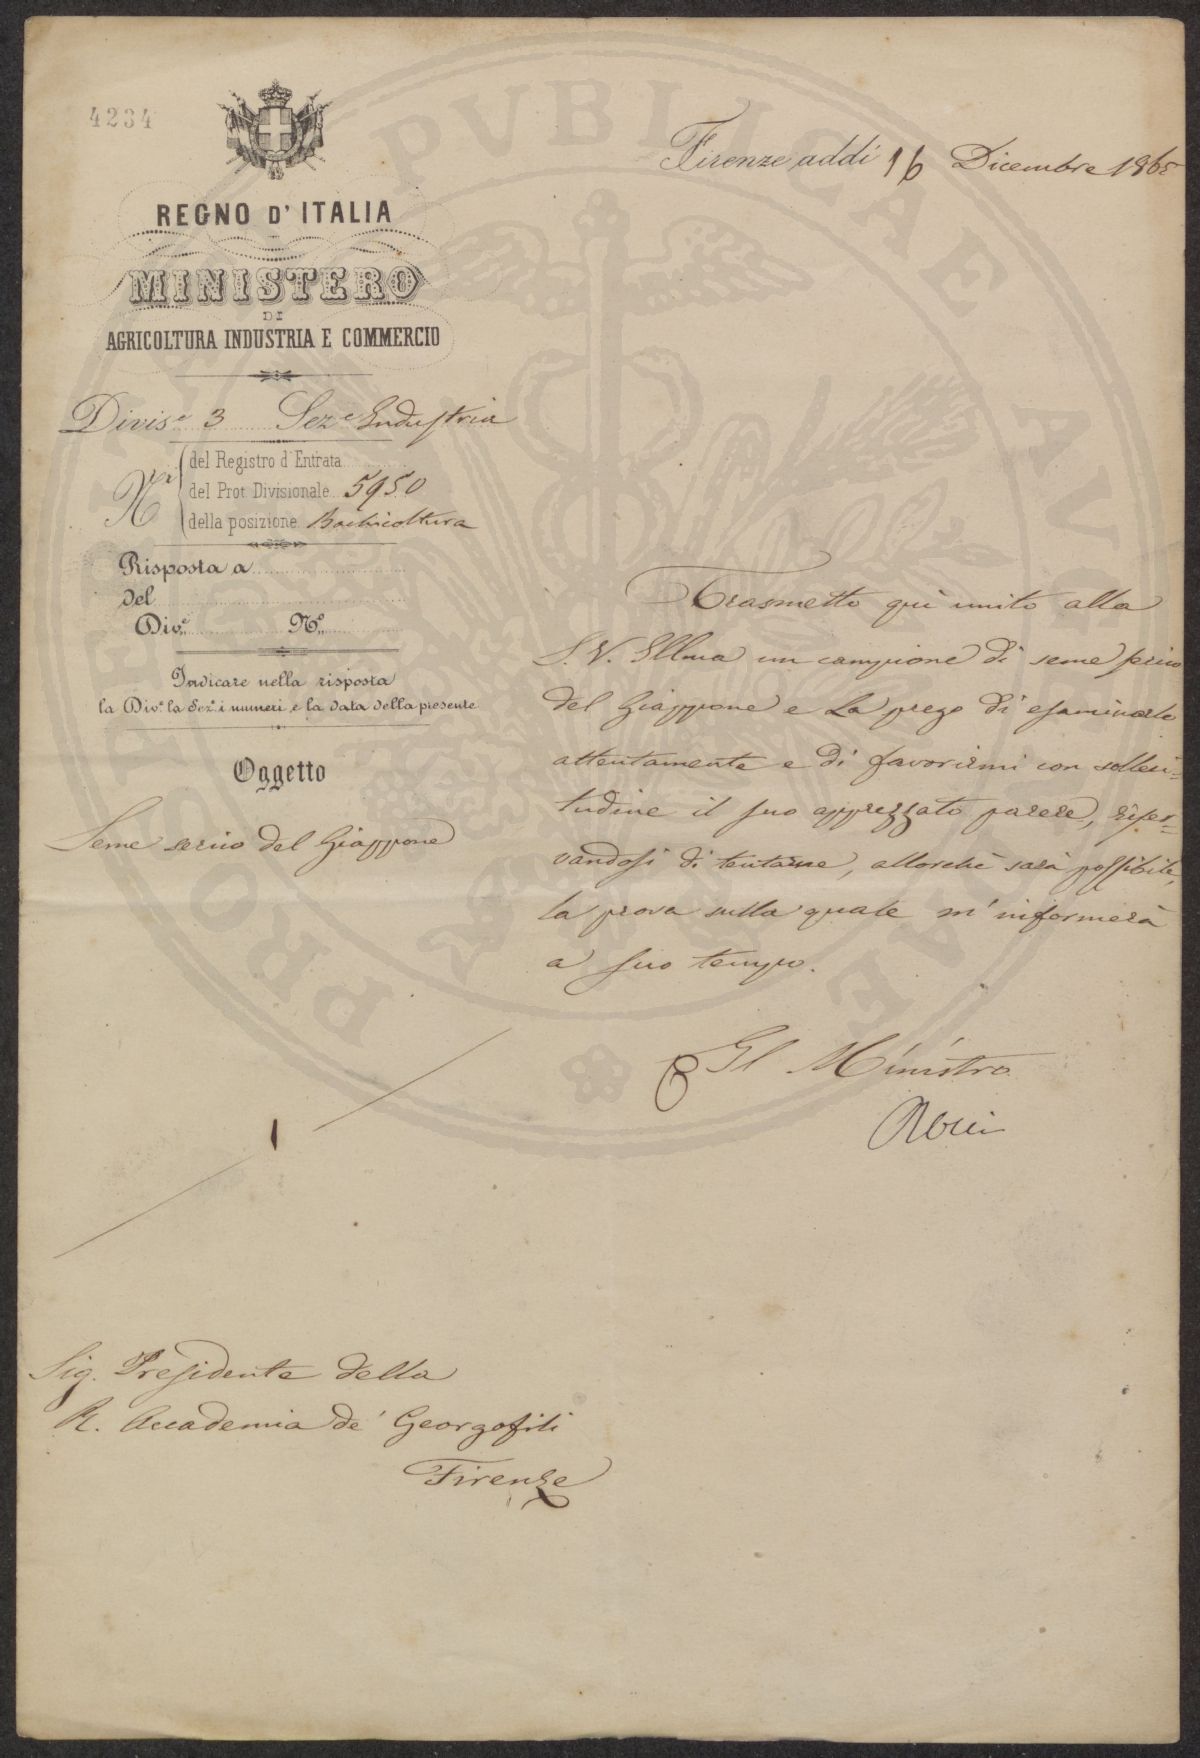 4234
REGNO D' ITALIA
MINISTERO
DI
AGRICOLTURA INDUSTRIA E COMMERCIO
Firenze, addì 16 Dicembre 1865
Divis.e 3 Sez.e Industria
N.o
del Registro d'Entrata
del Prot. Divisionale 5950
della posizione Bachicoltura
Risposta a
del
Div.e N.o
Indicare nella risposta
la Div.e la Sez.e i numeri e la data della presente
Oggetto
Seme serico del Giappone
Trasmetto quì unito alla
S.V. Illma un campione di seme serico
del Giappone e La prego di esaminarlo
attentamente e di favorirmi con solleci=
tudine il suo apprezzato parere, riser=
vandosi di tentarne, allorchè sarà possibile,
la prova sulla quale m'informerà
a suo tempo.
Il Ministro
Sig. Presidente della
R. Accademia de' Georgofili
Firenze
PRO PVBLICAE